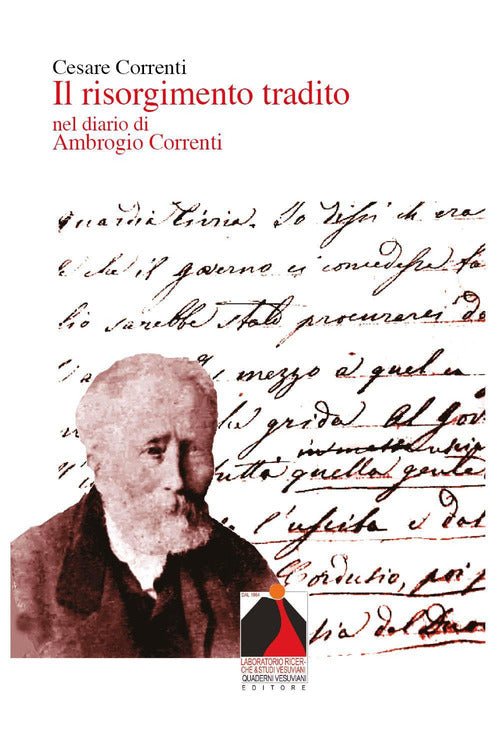 Cesare Correnti
Il risorgimento tradito
nel diario di
Ambrogio Correnti
guardia Civica. Io dissi ch era
e che il governo ci concedesse fa
lio sarebbe stato procurarci da
mezzo a quel
grida al Gov
tutta quella gente
l'uscita e dal
Cordusio, poi p
del Duo
DAL 1984
LABORATORIO RICER-
CHE & STUDI VESUVIANI
QUADERNI VESUVIANI
EDITORE